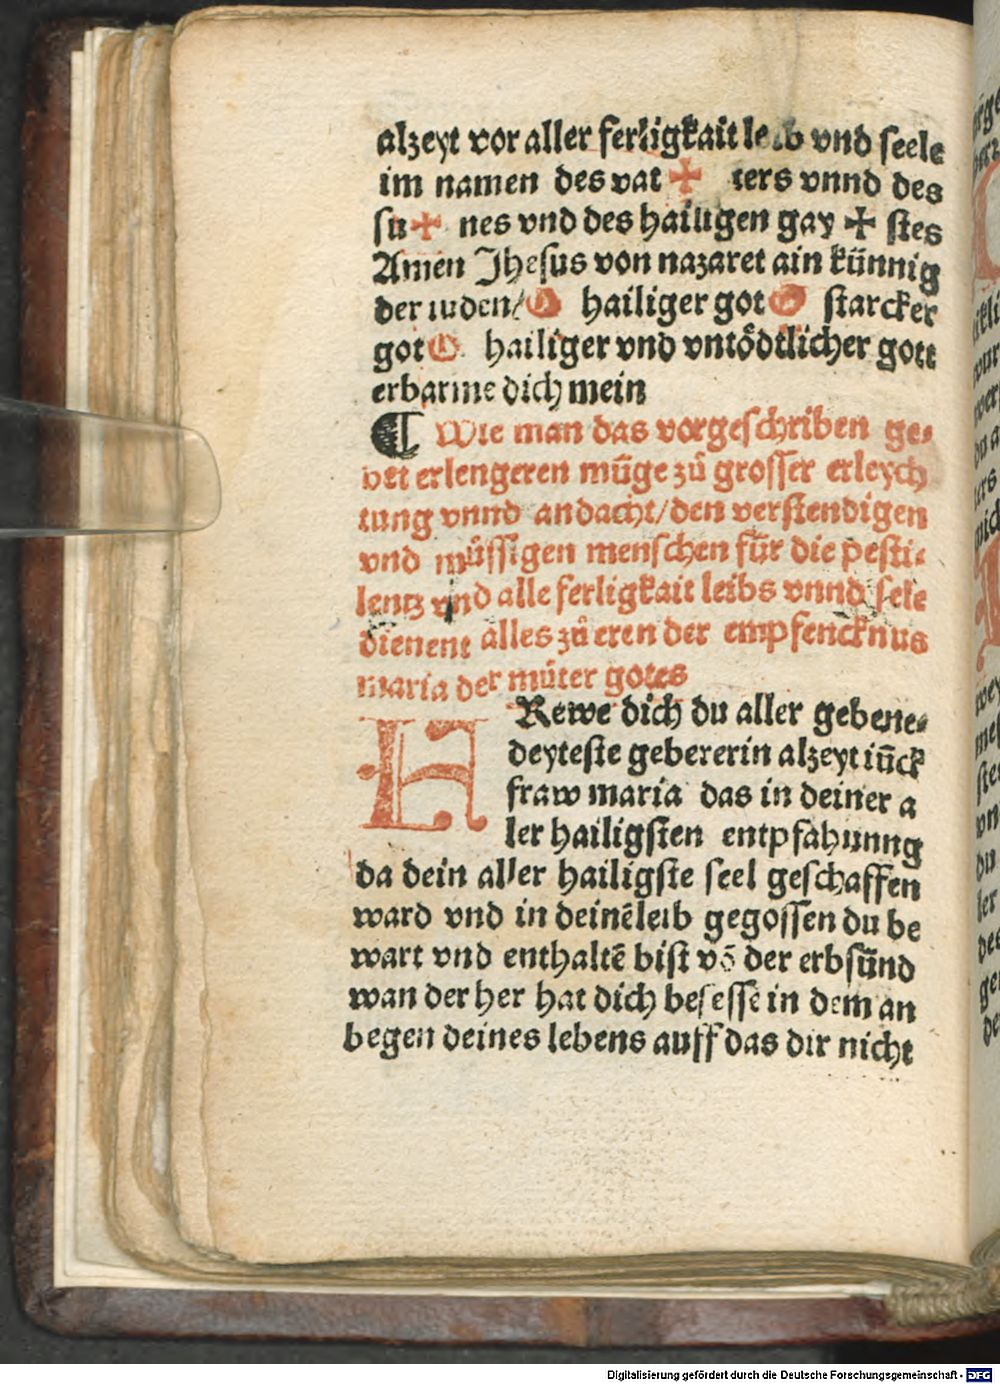 alzeyt vor aller ferligkait leib vnd seele
im namen des vat ✠ ters vnnd des
su ✠ nes vnd des hailigen gay ✠ stes
Amen Jhesus von nazaret ain künnig
der iuden/ O hailiger got O starcker
got O hailiger vnd vntödtlicher gott
erbarme dich mein
¶ Wie man das vorgeschriben ge⸗
bet erlengeren müge zů grosser erleych
tung vnnd andacht/den verstendigen
vnd müssigen menschen für die pesti⸗
lentz vnd alle ferligkait leibs vnnd sele
dienent alles zů eren der empfencknus
maria der můter gotes
FRewe dich du aller gebene⸗
deyteste gebererin alzeyt iūck
fraw maria das in deiner a
ler hailigsten entpfahunng
da dein aller hailigste seel geschaffen
ward vnd in deinē leib gegossen du be
wart vnd enthaltē bist vō der erbsünd
wan der her hat dich besessē in dem an
begen deines lebens auff das dir nicht
Digitalisierung gefördert durch die Deutsche Forschungsgemeinschaft - DFG